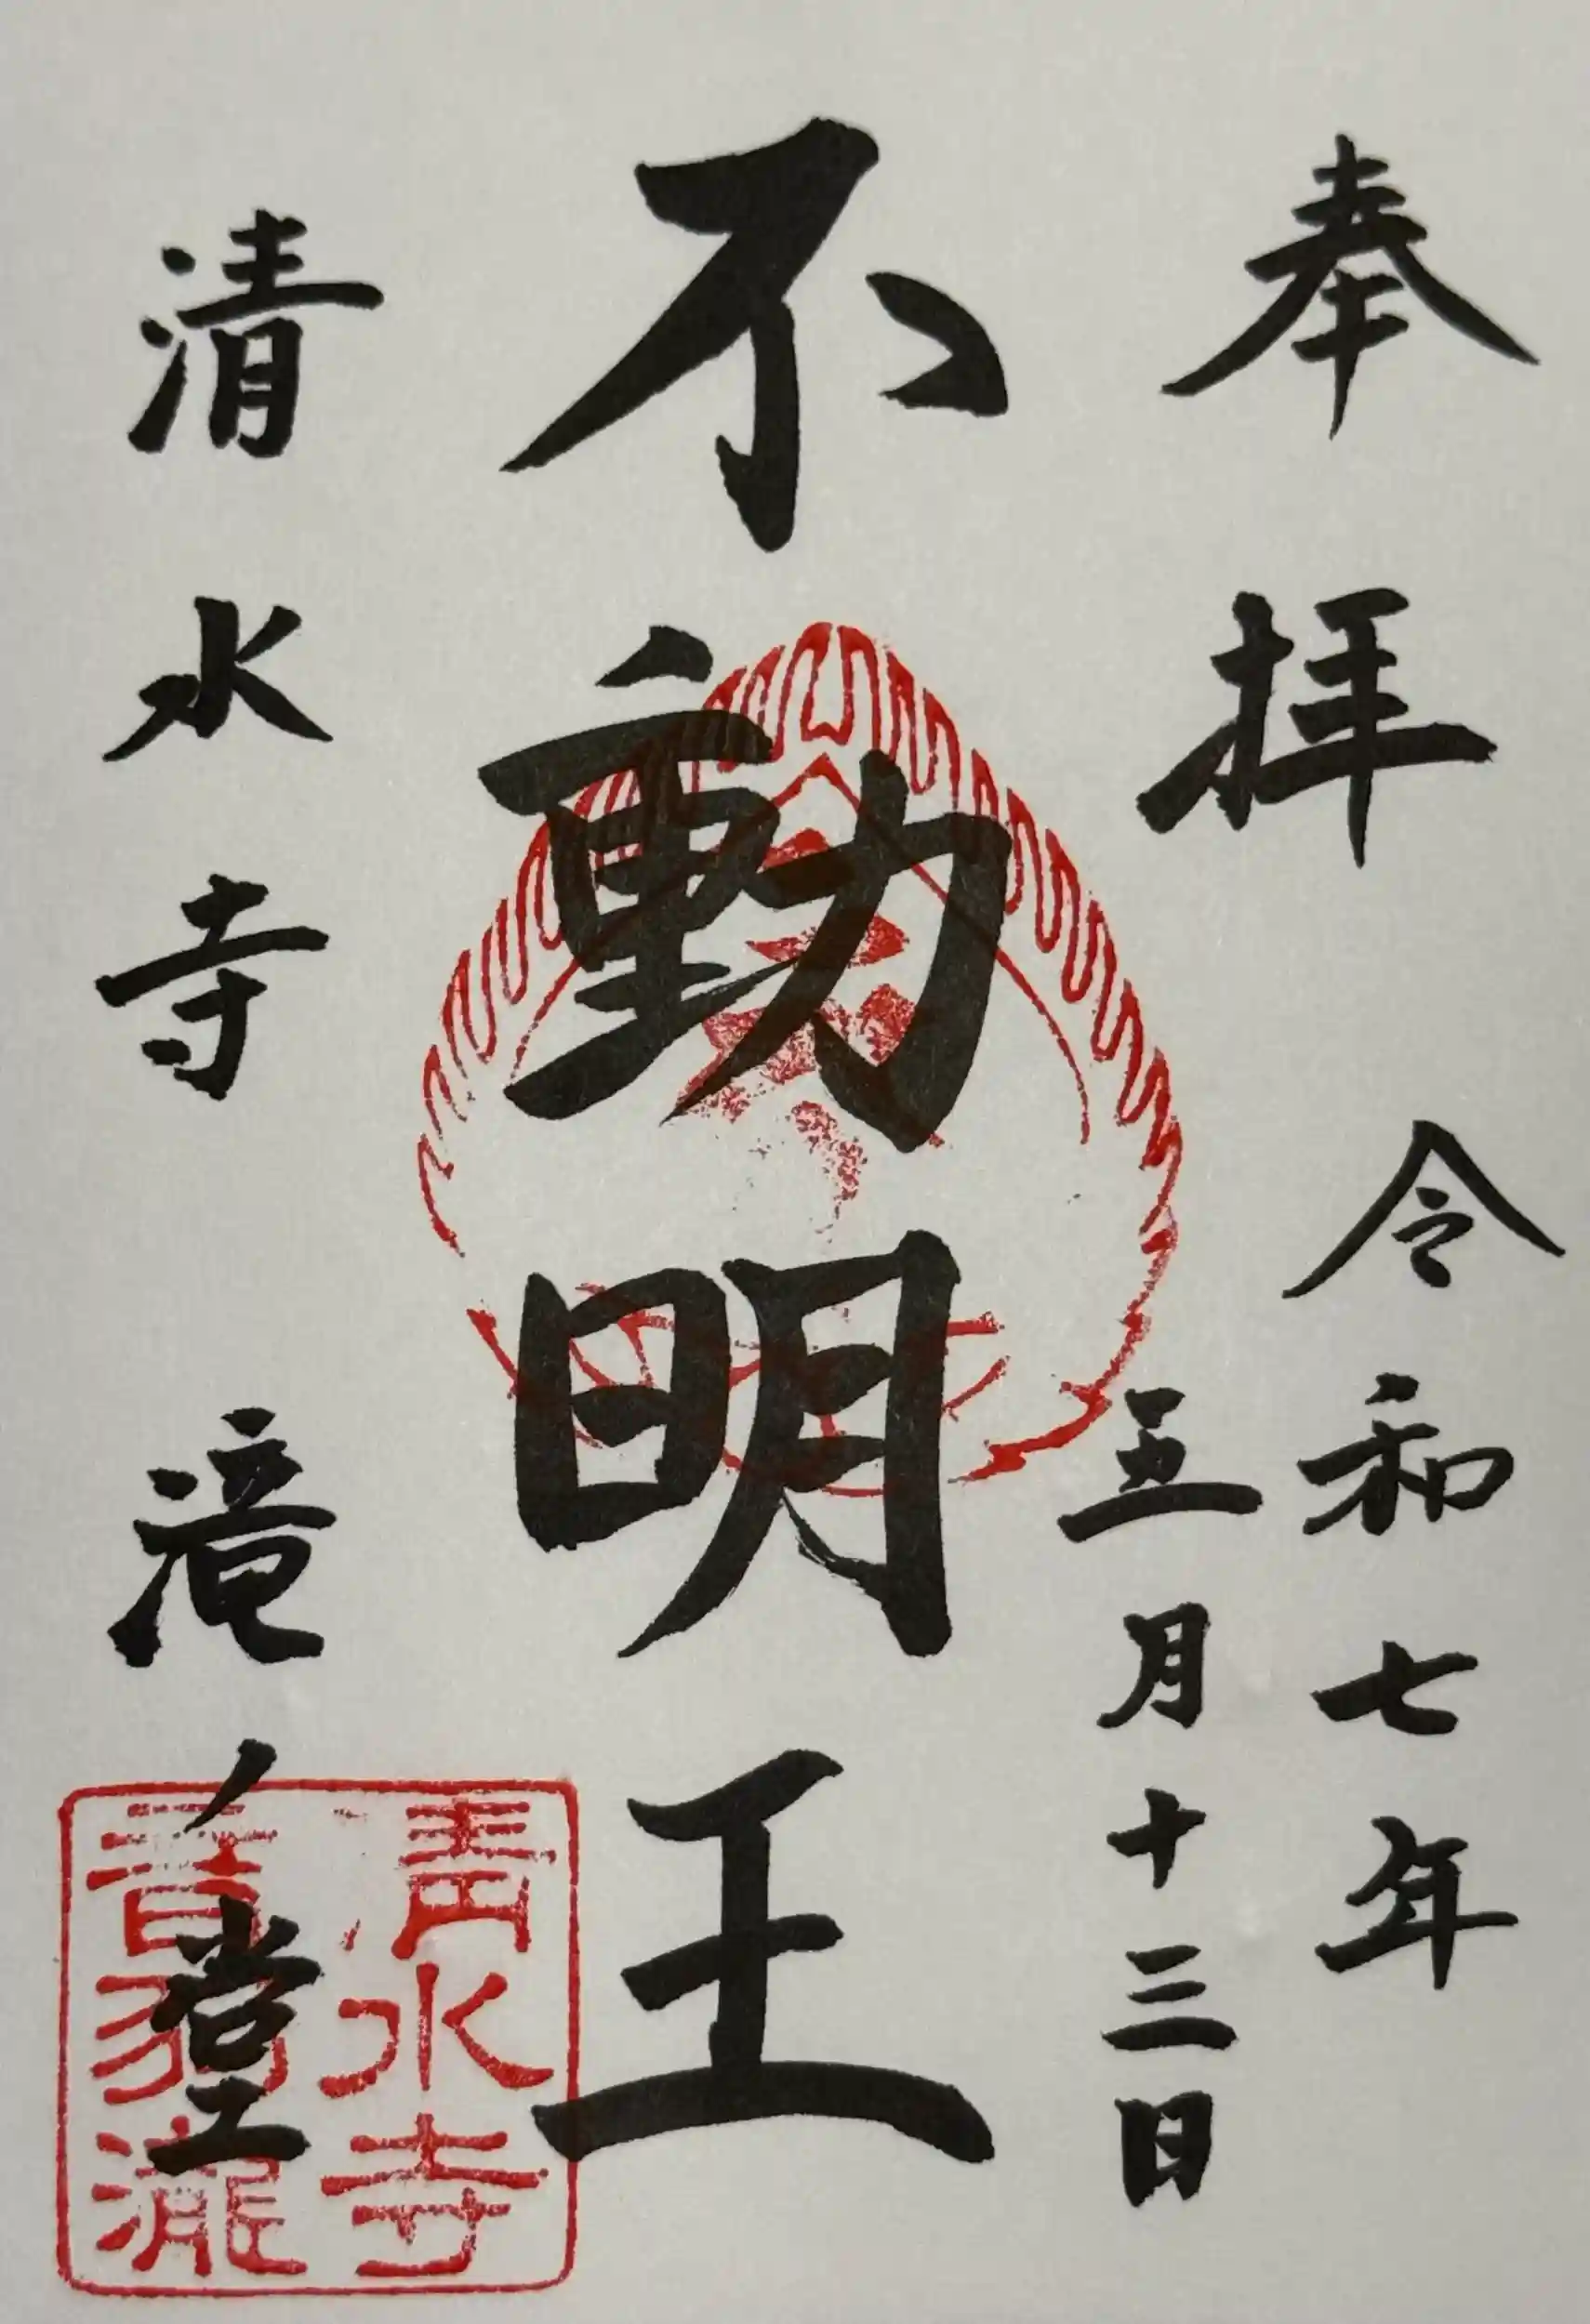 奉拝
令和七年
五月十三日
不動明王
清水寺 滝ノ堂
清水寺
音羽瀧